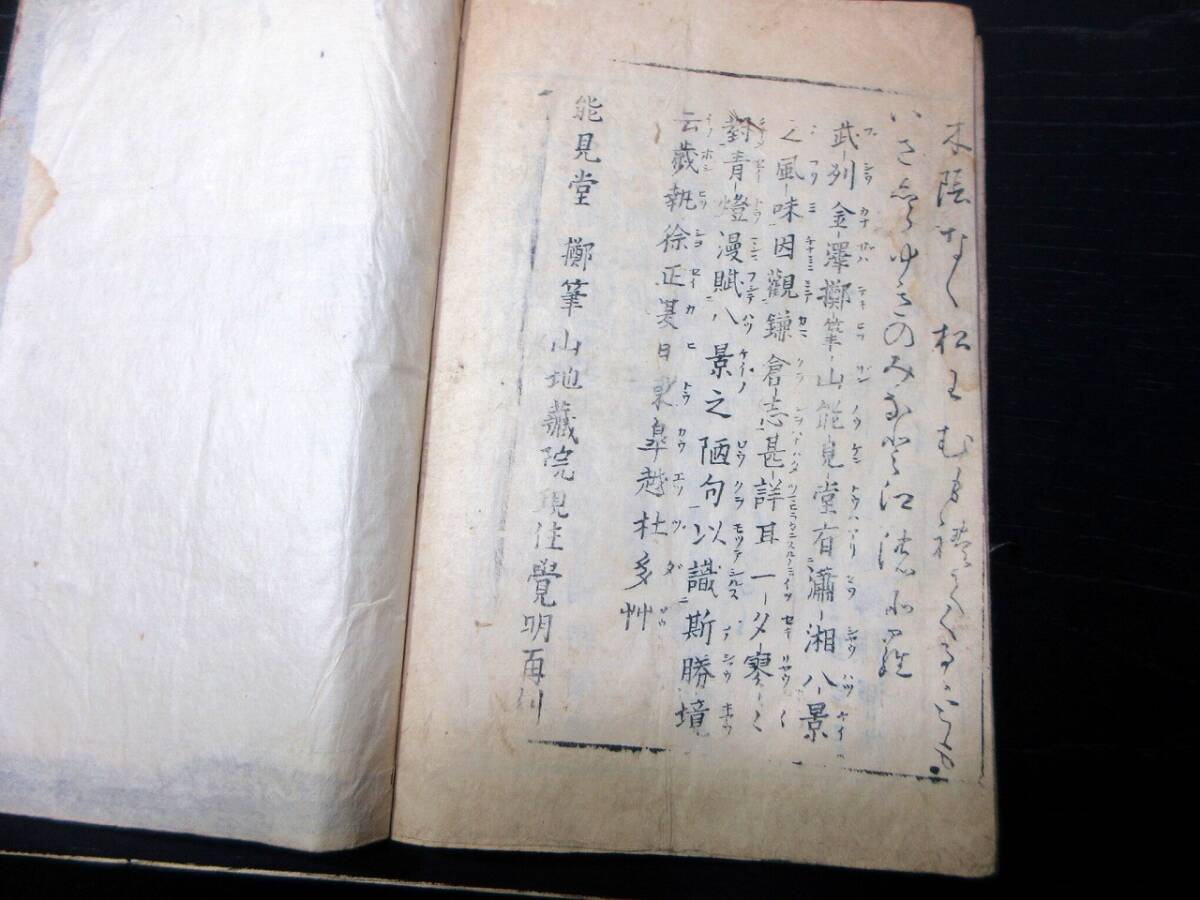 木陰なく松にむもれてくるゝとも
いさしらゆきのみなと江のそら
武州金澤擲筆山能見堂有瀟湘八景
之風味因觀鎌倉志甚詳耳一夕寥〻
對青燈漫賦八景之陋句以識斯勝境
云歳執徐正夏日東皐越杜多艸
能見堂 擲筆山地藏院現住覺明再刊